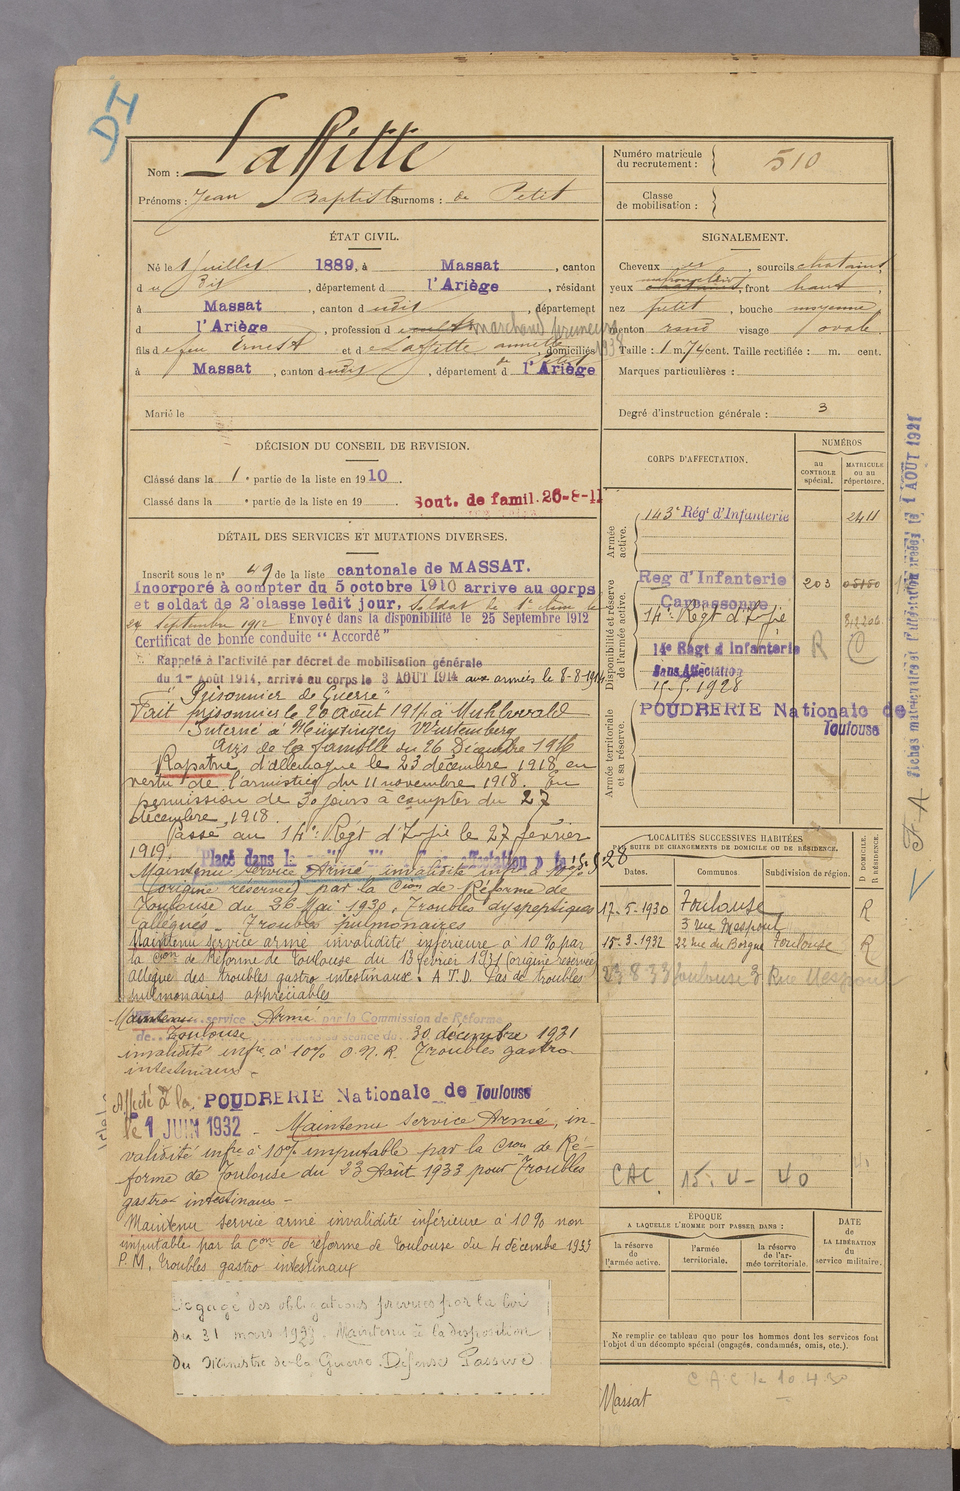 DI
Nom : Laffitte
Prénoms : Jean Baptiste Surnoms : de Petit
Numéro matricule du recrutement : 510
Classe de mobilisation :
ÉTAT CIVIL.
Né le 1 Juillet 1889, à Massat, canton
du dit, département d l'Ariège, résidant
à Massat, canton dudit, département
d l'Ariège, profession d marchand primeurs 1938
fils de feu Ernest et de Laffitte annette de Petit, domiciliés
à Massat, canton dudit, département d l'Ariège
Marié le
SIGNALEMENT.
Cheveux, sourcils chatains,
yeux, front haut,
nez petit, bouche moyenne
menton rond visage ovale
Taille : 1 m. 74 cent. Taille rectifiée : m. cent.
Marques particulières :
Degré d'instruction générale : 3
DÉCISION DU CONSEIL DE REVISION.
Classé dans la 1e partie de la liste en 1910.
Classé dans la e partie de la liste en 19 Sout. de famil. 26-8-11
DÉTAIL DES SERVICES ET MUTATIONS DIVERSES.
Inscrit sous le n° 49 de la liste cantonale de MASSAT.
Incorporé à compter du 5 octobre 1910 arrive au corps
et soldat de 2e classe ledit jour. Soldat de 1e classe le
24 Septembre 1912 Envoyé dans la disponibilité le 25 Septembre 1912
Certificat de bonne conduite "Accordé"
Rappelé à l'activité par décret de mobilisation générale
du 1er Août 1914, arrivé au corps le 3 AOUT 1914 aux armées le 8-8-1914
"Prisonnier de Guerre"
Fait prisonnier le 20 août 1914 à Muhlwald
Interné à Müntingen Wurtemberg
Avis de la famille du 26 Décembre 1916
Rapatrié d'allemagne le 23 décembre 1918 en
vertu de l'armistice du 11 novembre 1918. En
permission de 30 jours à compter du 27
décembre 1918.
Passé au 14e Régt d'Infie le 27 février
1919. Placé dans la affectation 15.5.28
Maintenu service Armé, invalidité infre à 10%
(origine réservée) par la Cion de Réforme de
Toulouse du 26 Mai 1930. Troubles dyspeptiques
allégués - Troubles pulmonaires
Maintenu service armé invalidité inférieure à 10% par
la Cion de Réforme de Toulouse du 13 février 1931 (origine réservée)
allègue des troubles gastro intestinaux. A.T.D. Pas de troubles
pulmonaires appréciables
Maintenu service Armé par la Commission de Réforme
de Toulouse séance du 30 décembre 1931
invalidité infre à 10% O.N.R. Troubles gastro
intestinaux -
Affecté à la POUDRERIE Nationale de Toulouse
le 1 JUIN 1932 - Maintenu service Armé, in-
validité infre à 10% imputable par la Cion de Ré-
forme de Toulouse du 23 Août 1933 pour Troubles
gastro intestinaux -
Maintenu service armé invalidité inférieure à 10% non
imputable par la Con de réforme de Toulouse du 4 décembre 1933
P.M. Troubles gastro intestinaux
Dégagé des obligations prévues par la loi
du 31 mars 1928. Maintenu à la disposition
du Ministre de la Guerre. Défense Passive.
CORPS D'AFFECTATION.
NUMÉROS
au CONTROLE spécial.
MATRICULE ou au répertoire.
Armée active.
143e Régt d'Infanterie 2411
Disponibilité et réserve de l'armée active.
Reg d'Infanterie 203
Carcassonne
14e Régt d'Infie
14e Régt d'Infanterie R C
Sans Affectation
15.5.1928
Armée territoriale et sa réserve.
POUDRERIE Nationale de Toulouse
LOCALITÉS SUCCESSIVES HABITÉES
PAR SUITE DE CHANGEMENTS DE DOMICILE OU DE RÉSIDENCE.
Dates. Communes. Subdivision de région. D DOMICILE. R RÉSIDENCE.
17-5-1930 Toulouse R
3 rue Mespoul
15-3-1932 22 rue du Borgne Toulouse R
23 8 33 Toulouse 3 Rue Mespoul
CAC. 15-4-40
ÉPOQUE
A LAQUELLE L'HOMME DOIT PASSER DANS :
la réserve de l'armée active.
l'armée territoriale.
la réserve de l'armée territoriale.
DATE de LA LIBÉRATION du service militaire.
Ne remplir ce tableau que pour les hommes dont les services font
l'objet d'un décompte spécial (engagés, condamnés, omis, etc.).
CAC le 10.4.30
Massat